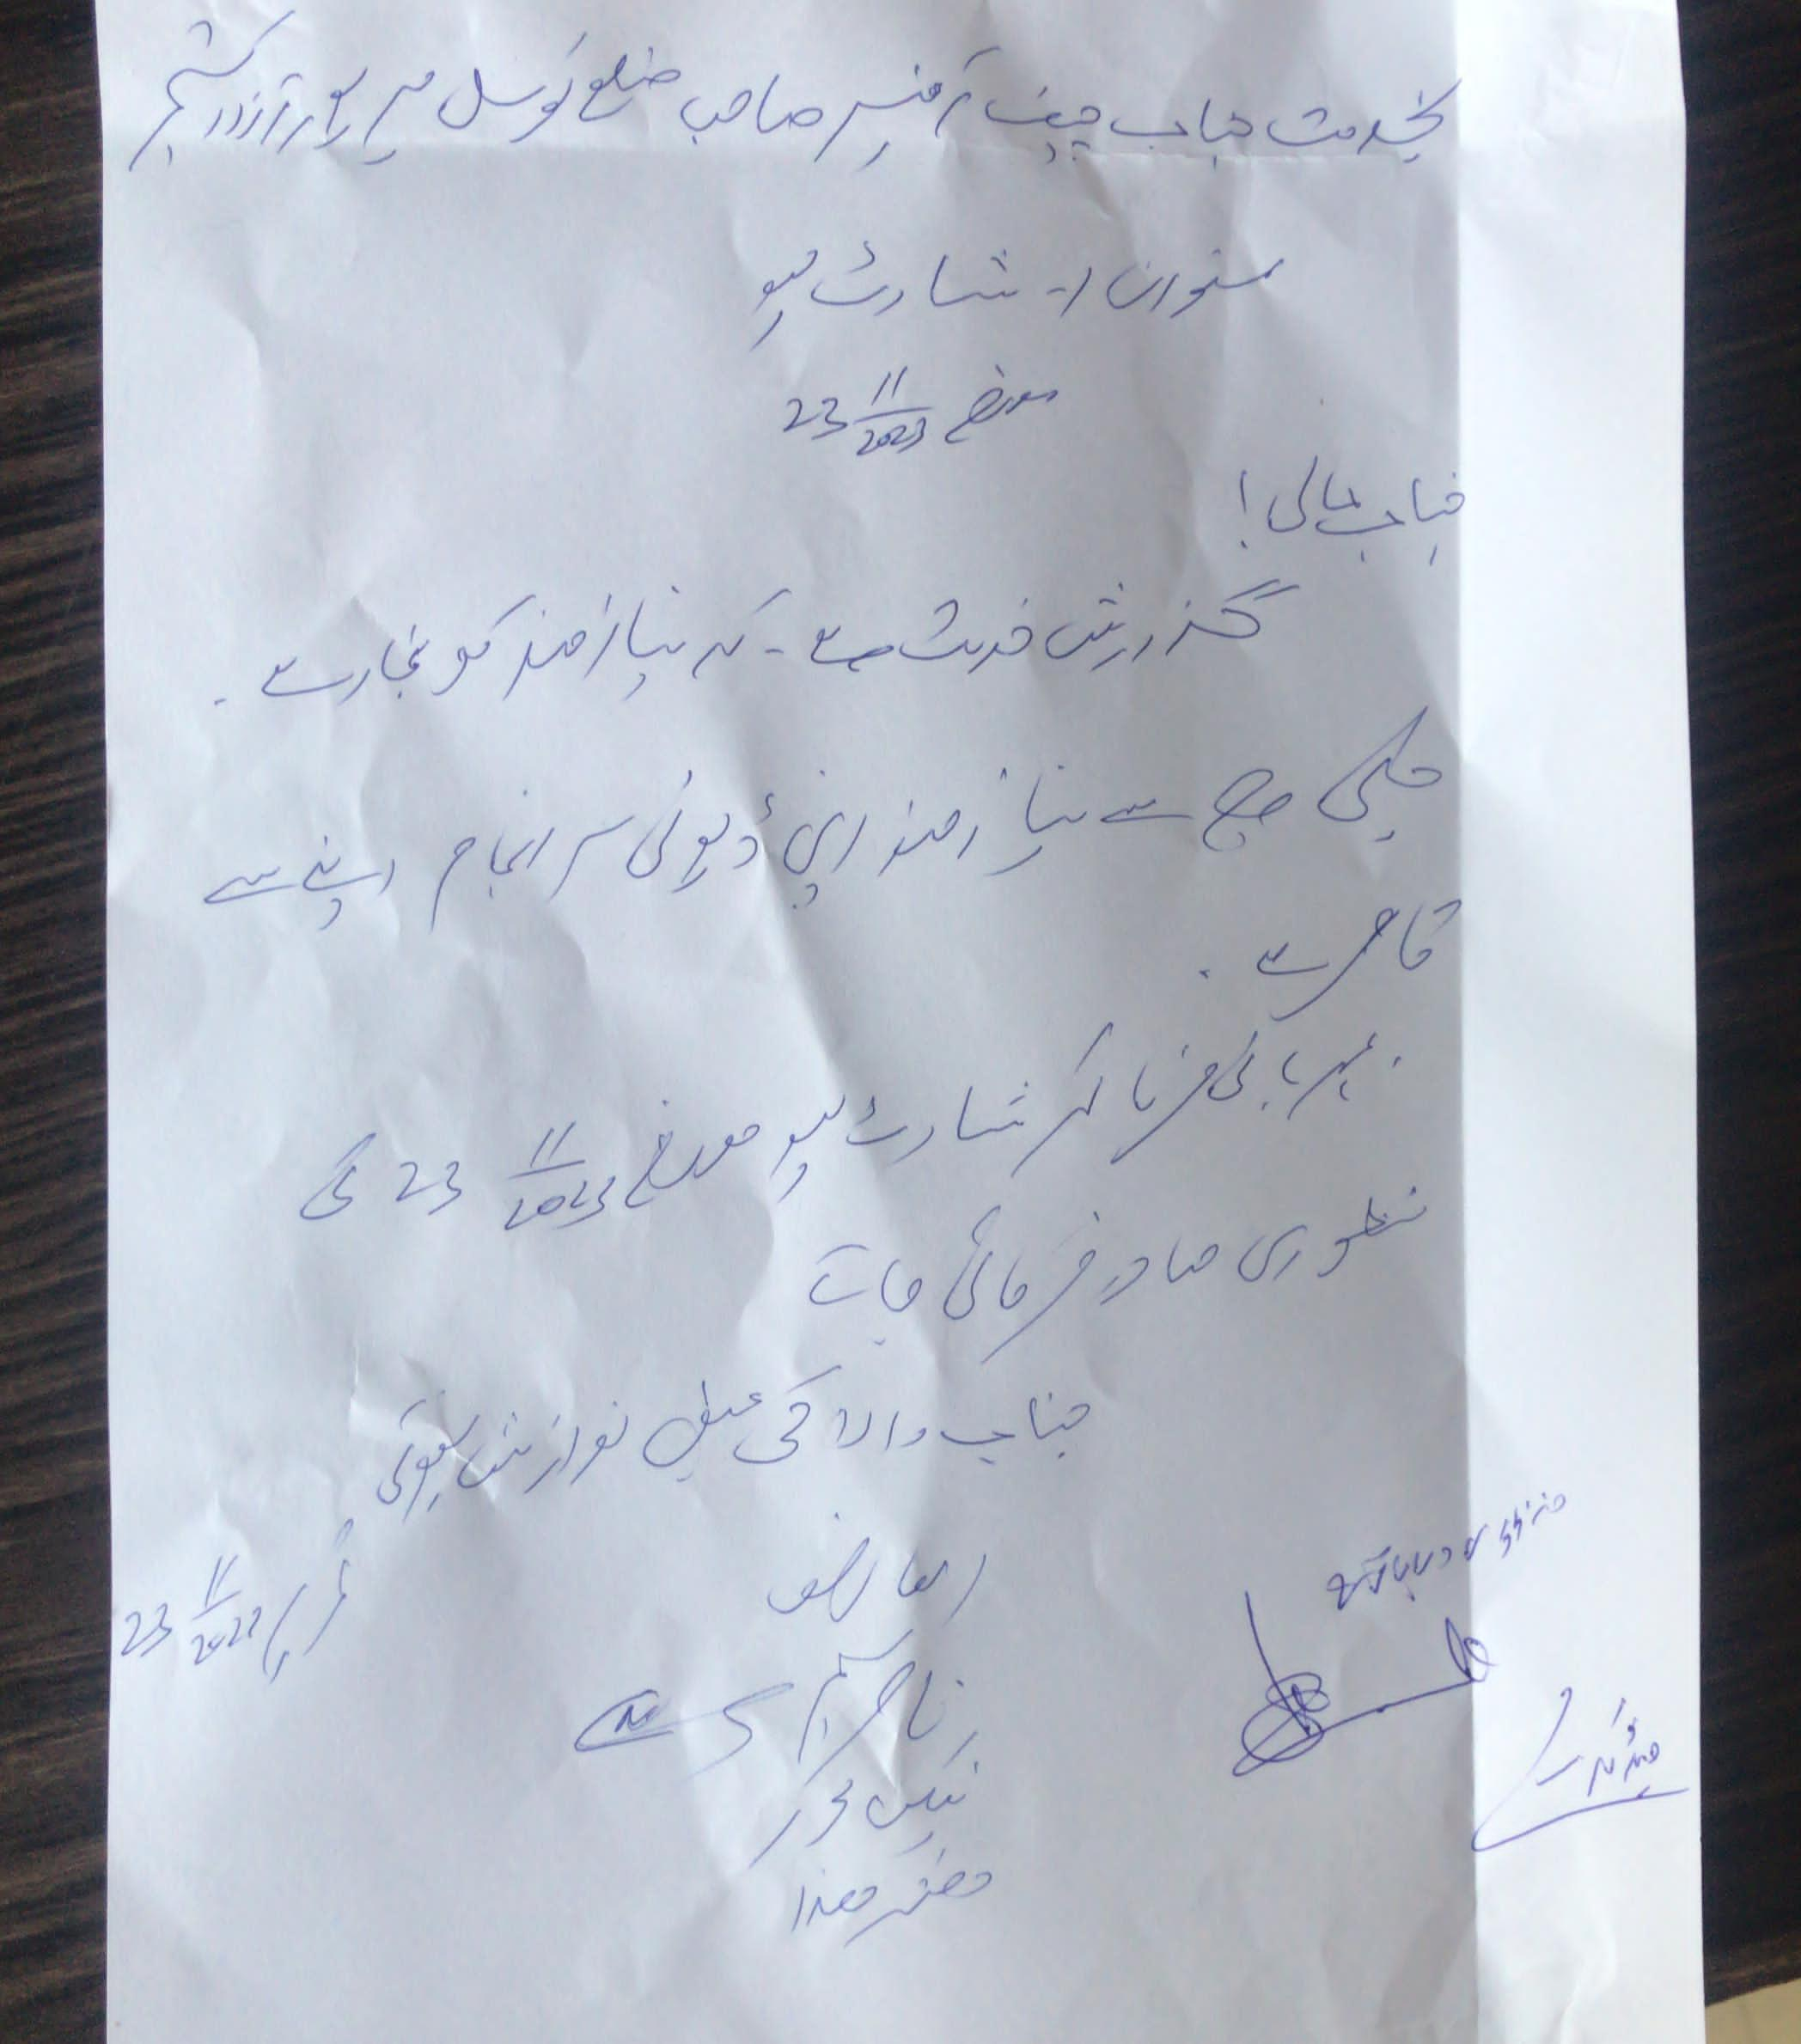 بخدمت جناب چیف آفیسر صاحب ضلع کونسل میرپور آزاد کشمیر
عنوان :- شارٹ لیو
مورخہ 23 11/2023
جناب عالی!
گزارش خدمت ہے - کہ نیاز مند کو بخار ہے -
جسکی وجہ سے نیاز مند اپنی ڈیوٹی سر انجام دینے سے
قاصر ہے -
مہربانی فرما کر شارٹ لیو مورخہ 23 11/2023 کی
منظوری صادر فرمائی جائے
جناب والا کی عین نوازش ہوگی
العارض
تحریر 23 11/2023
ناصر
ٹیکس محرر
دفتر ھذا